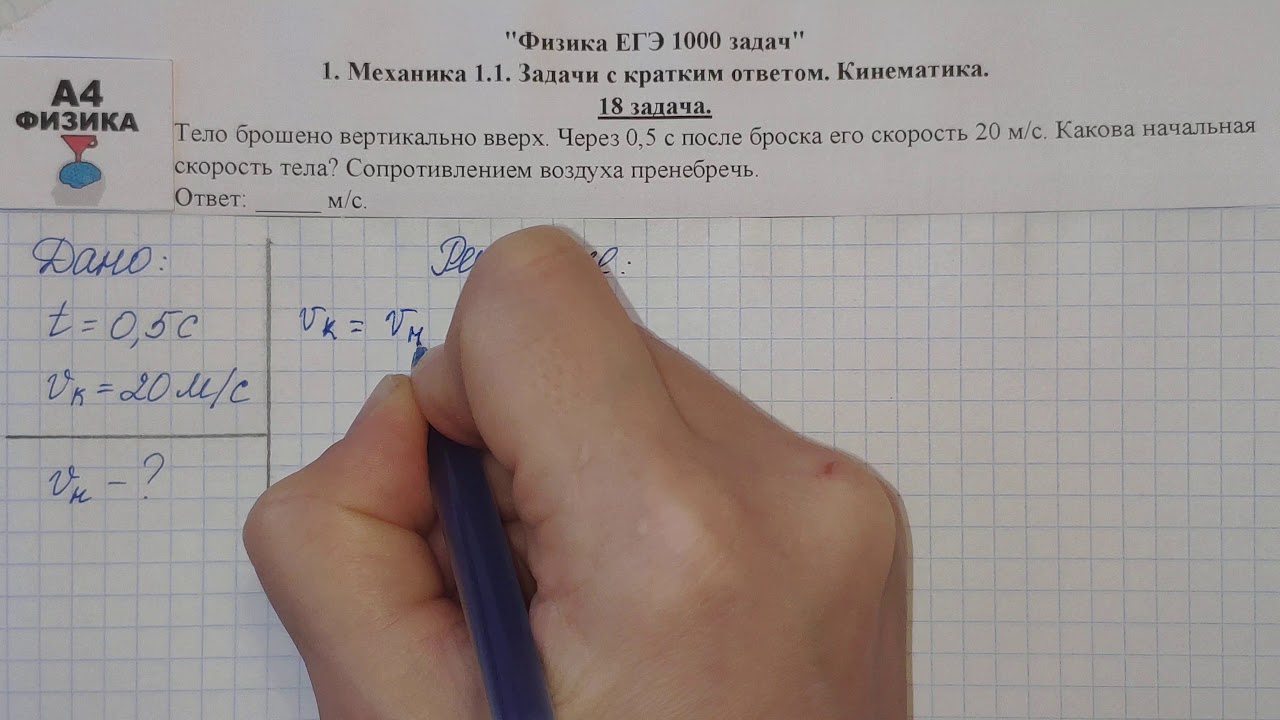 "Физика ЕГЭ 1000 задач"
1. Механика 1.1. Задачи с кратким ответом. Кинематика.
18 задача.
А4
ФИЗИКА
Тело брошено вертикально вверх. Через 0,5 с после броска его скорость 20 м/с. Какова начальная
скорость тела? Сопротивлением воздуха пренебречь.
Ответ: _____ м/с.
Дано:
t = 0,5 с
vк = 20 м/с
vн - ?
vк = vн